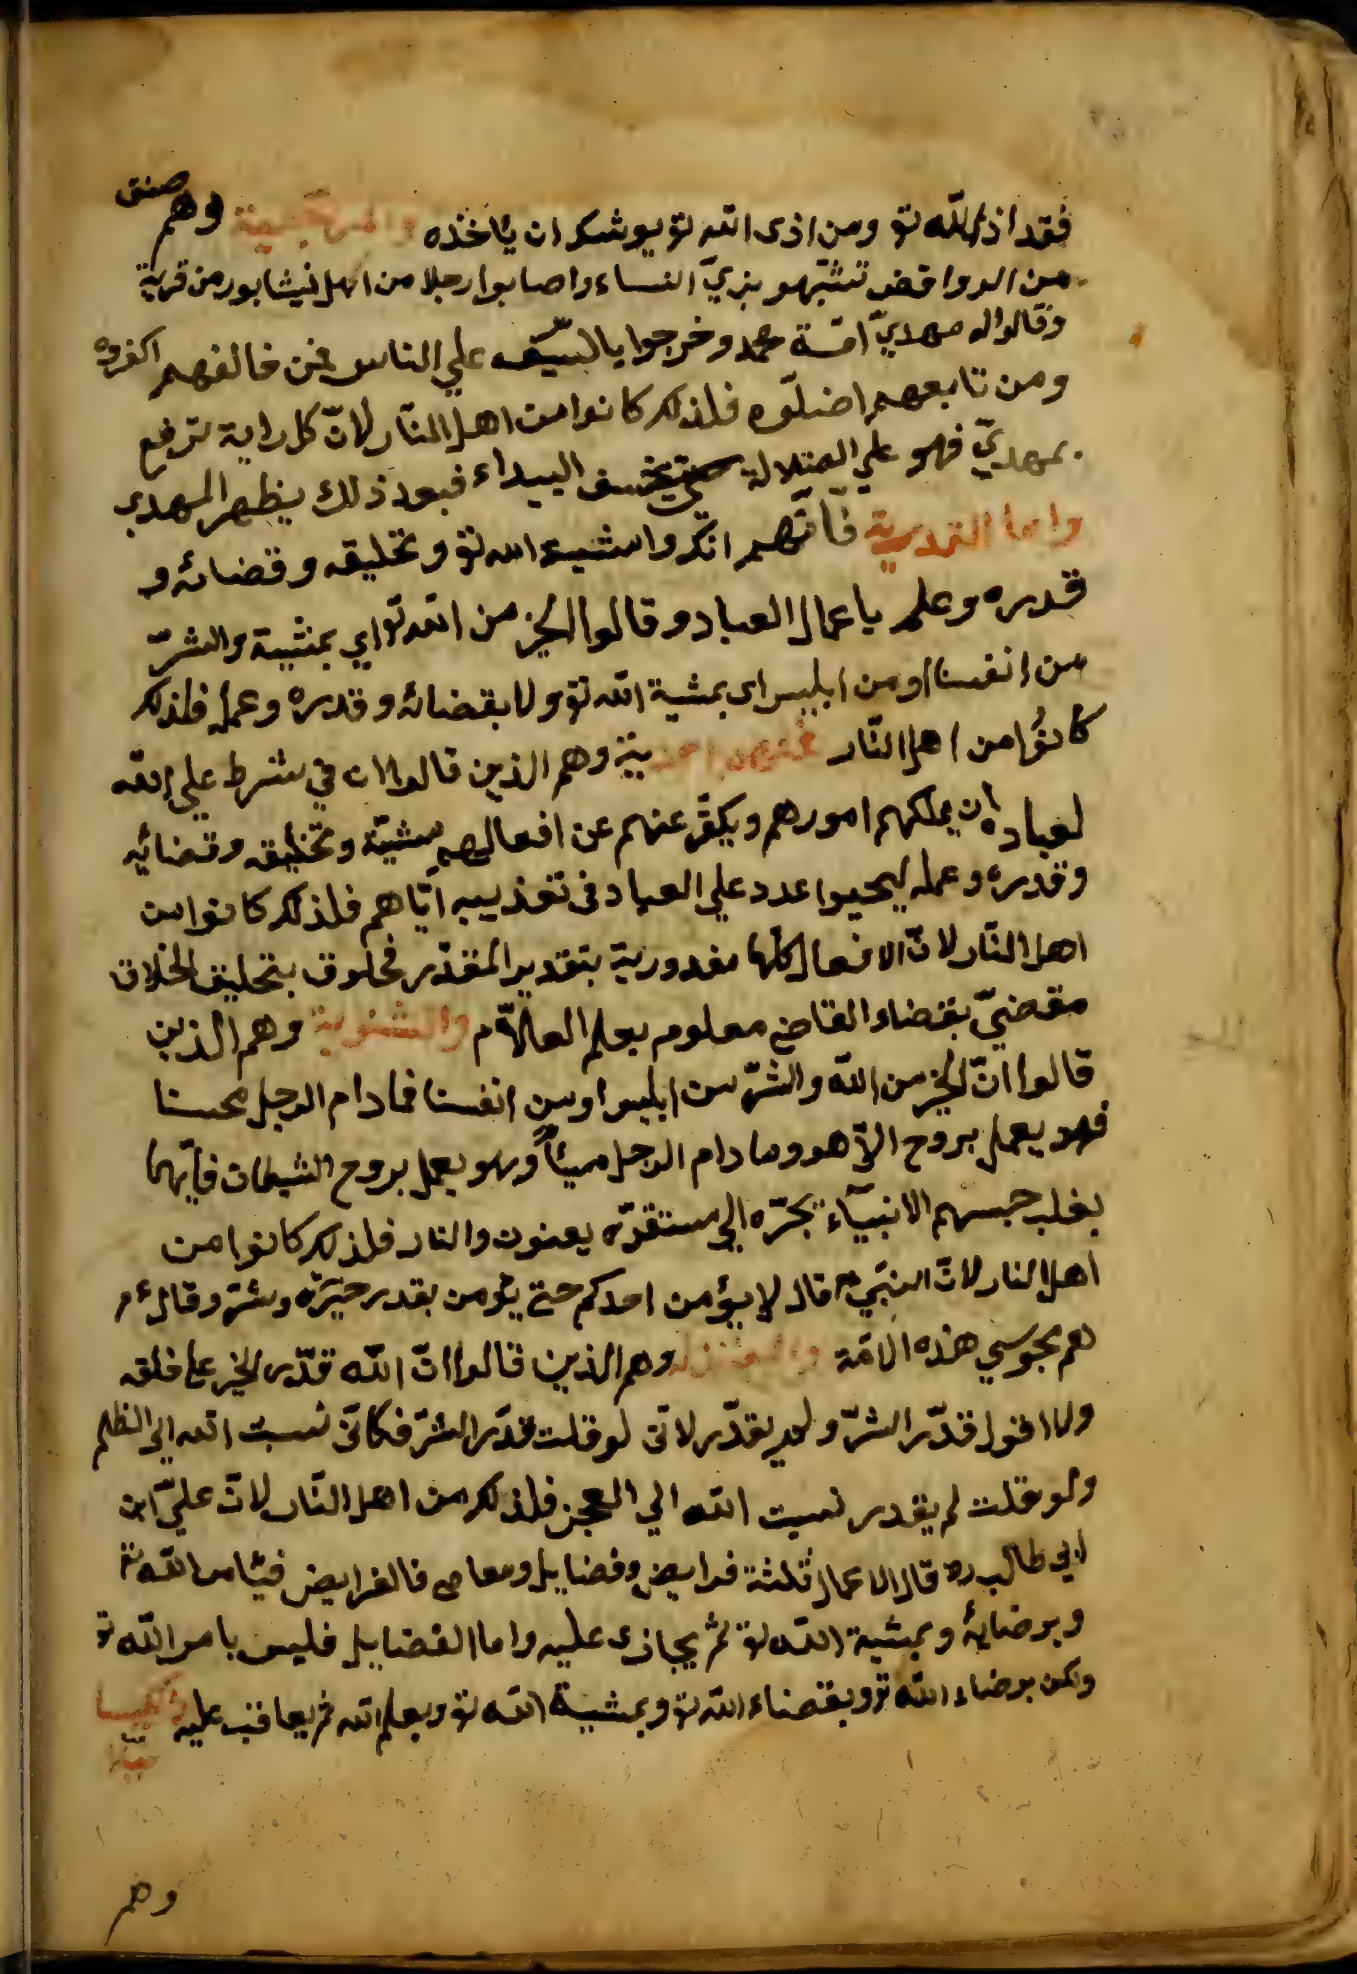 فقد اذى الله تع ومن اذى الله تع يوشك ان ياخذه وهم صنف
من الروافض تشبهو بزيّ النساء واصابوا رجلا من اهل نيشابور من قرية
وقالوا له مهديّ امّة محمد وخرجوا بالسّيف علي الناس فمن خالفهم اكفروه
ومن تابعهم اضلّوه فلذلك كانوا من اهل النّار لانّ كل راية ترفع
بمهديّ فهو علي الضلالة حتي يخسف البيداء فبعد ذلك يظهر المهدي
واما القدرية فانّهم انكروا مشية الله تع وتخليقه وقضائه و
قدره وعلمه باعمال العباد وقالوا الخير من الله تع اي بمشية والشرّ
من انفسنا او من ابليس اى بمشية الله تع ولا بقضائه وقدره وعمله فلذلك
كانوُا من اهل النّار وهم الذين قالوا ان في شرط علي الله
لعباده ان يملكهم امورهم ويكفّ عنهم عن افعالهم مشيّة وتخليقه وقضائيه
وقدره وعمله ليحيوا عدد علي العباد فى تعذيبه ايّاهم فلذلك كانوا من
اهل النّار لانّ الافعال كلّها مقدورية بتقدير المقدّر فمخلوق بتخليق الخلاق
مقضيّ بقضاء القاضي معلوم بعلم العلاّم والثنوية وهم الذين
قالوا انّ الخير من الله والشرّ من ابليس او من انفسنا فما دام الرجل محسنا
فهو يعمل بروح الاّهو وما دام الرجل مسيئاً وهو يعمل بروح الشيطان فايّهما
يغلب حبسهم الانبيّاء يجرّه الي مستقرّه يعنون والنار فلذلك كانوا من
اهل النار لانّ النبيّ قال لا يؤمن احدكم حتي يؤمن بقدر خيره وشرّ وقال ءم
هم مجوسي هذه الامّة والمعتزلة وهم الذين قالوا انّ الله قدّر الخير علي خلقه
ولا اقول قدّر الشرّ ولم يقدّر لانّى لو قلت قدّر الشرّ فكانّى نسبت الله الي الظلم
ولو قلت لم يقدر نسبت الله الي العجز فلذلك من اهل النّار لانّ عليّ ابن
ابي طالب رض قال الاعمال ثلثة فرايض وفضايل ومعاصي فالفرايض فبامر الله تع
وبرضائه وبمشية الله تع ثم يجازى عليه واما الفضايل فليس بامر الله تع
ولكن برضاء الله تع وبقضاء الله تع وبمشية الله تع وبعلم الله ثم يعاقب عليه
وهم